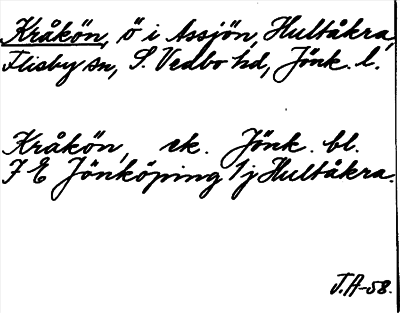 Kråkön, ö i Assjön, Hultåkra,
Flisby sn, S. Vedbo hd, Jönk. l.
Kråkön, ek. Jönk. bl.
7 E Jönköping 1 j Hultåkra.
J.A-58.